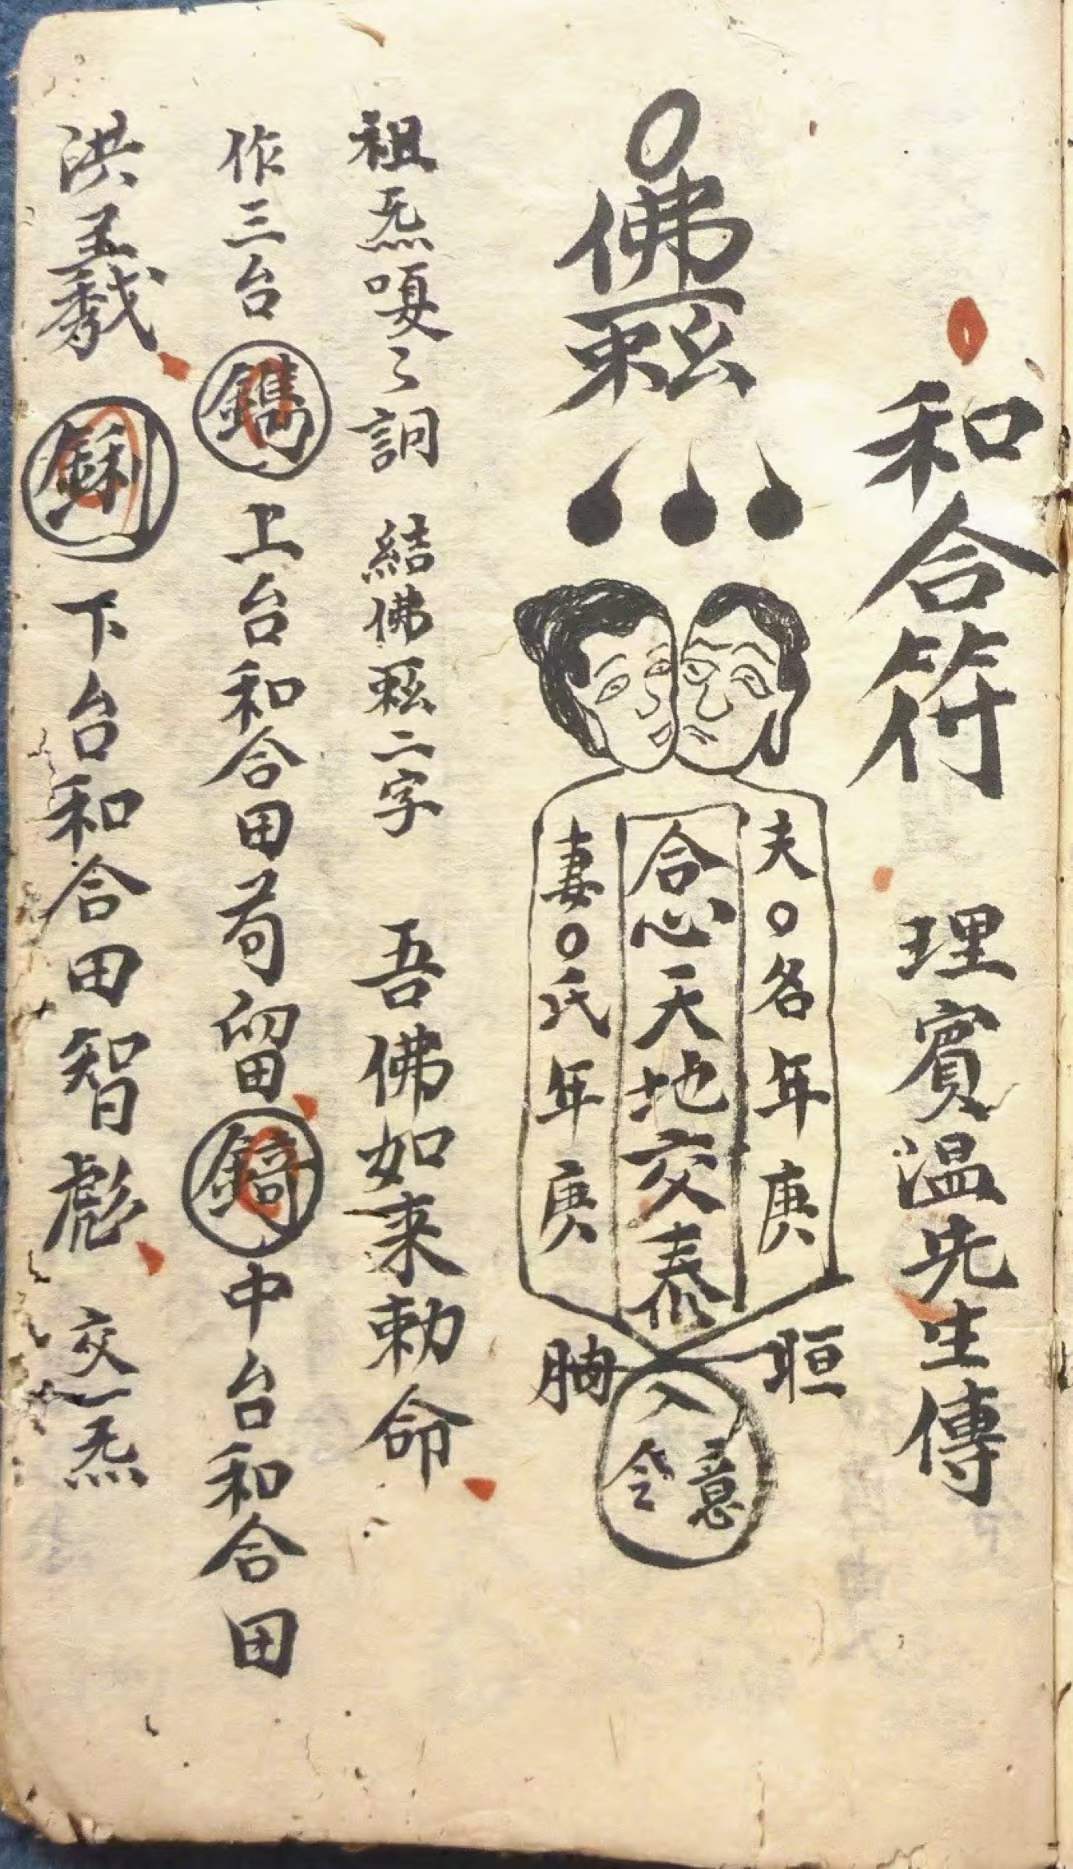 和合符 理賓温先生傳
佛
夫〇名年庚
合心天地交泰
妻〇氏年庚
入
意
祖炁 結佛 二字 吾佛如来勅命
作三台 鐫 上台和合田苟留 錡 中台和合田
洪 下台和合田智彪 交一炁